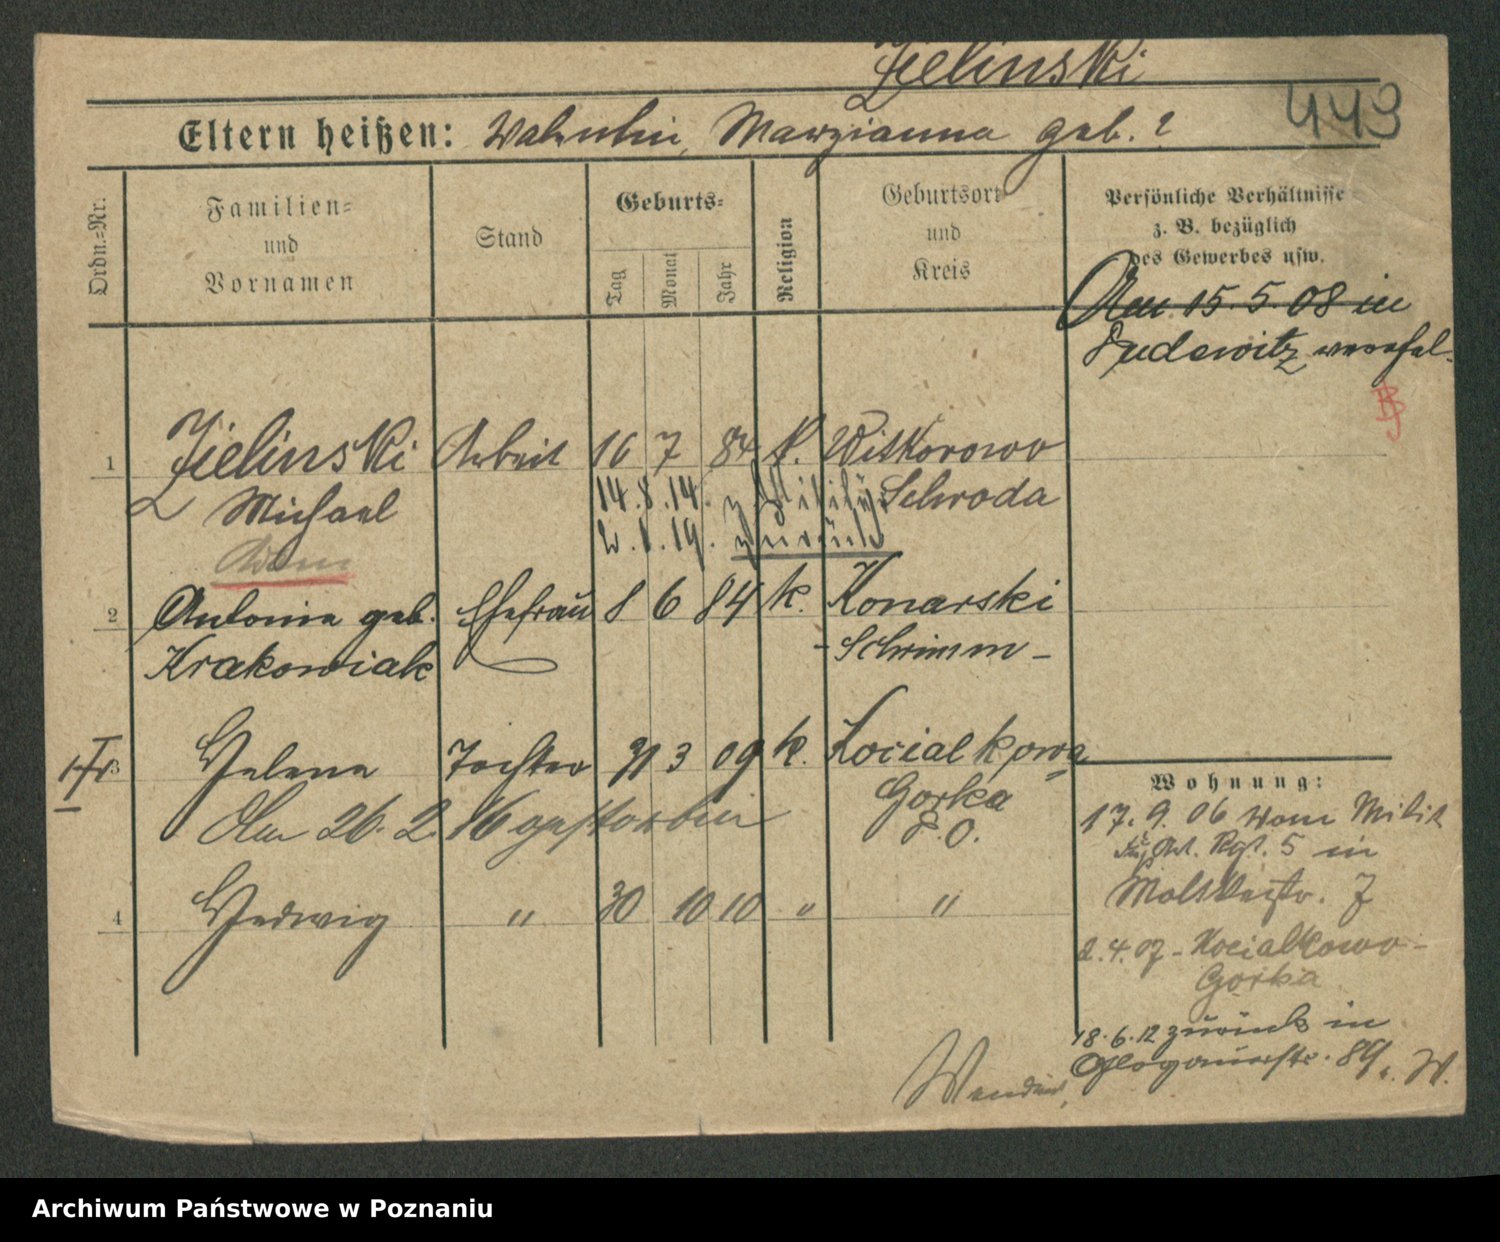 Zielinski
443
Eltern heißen: Valentin, Maryianna geb. ?
Ordn.-Nr.
Familien-
und
Vornamen
Stand
Geburts-
Tag
Monat
Jahr
Religion
Geburtsort
und
Kreis
Persönliche Verhältnisse
z. B. bezüglich
des Gewerbes usw.
Am 15.5.08 in
Pudewitz verehel.
1 Zielinski Arbeit 16 7 84 k. Wiktorowo
Michael 14.8.14. z. Militär Schroda
2.1.19. zurück
2 Antonie geb. Ehefrau 8 6 84 k. Konarski
Krakowiak - Schrimm -
3 Helene Tochter 31 3 09 k. Kocialkowa
Gorka
Am 26. 2. 16 gestorben P.O.
4 Hedwig " 30 10 10 " "
Wohnung:
17.9.06 vom Milit
Rgt. 5 in
Moltkestr. 7
2.4.07 - Kocialkowo-
Gorka
18.6.12 zurück in
Glogauerstr. 89. W.
Archiwum Państwowe w Poznaniu